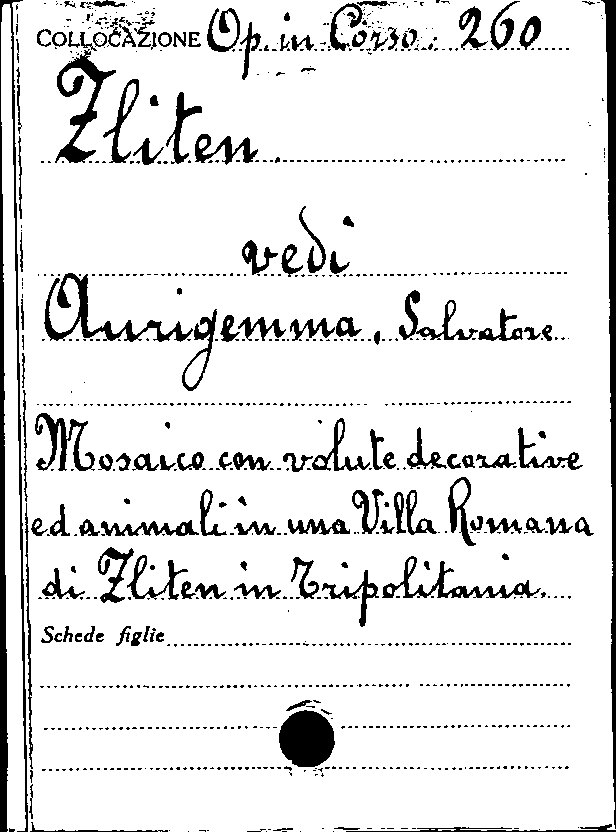 COLLOCAZIONE Op. in Corso. 260
Zliten.
vedi
Aurigemma, Salvatore
Mosaico con volute decorative
ed animali in una Villa Romana
di Zliten in Tripolitania.
Schede figlie